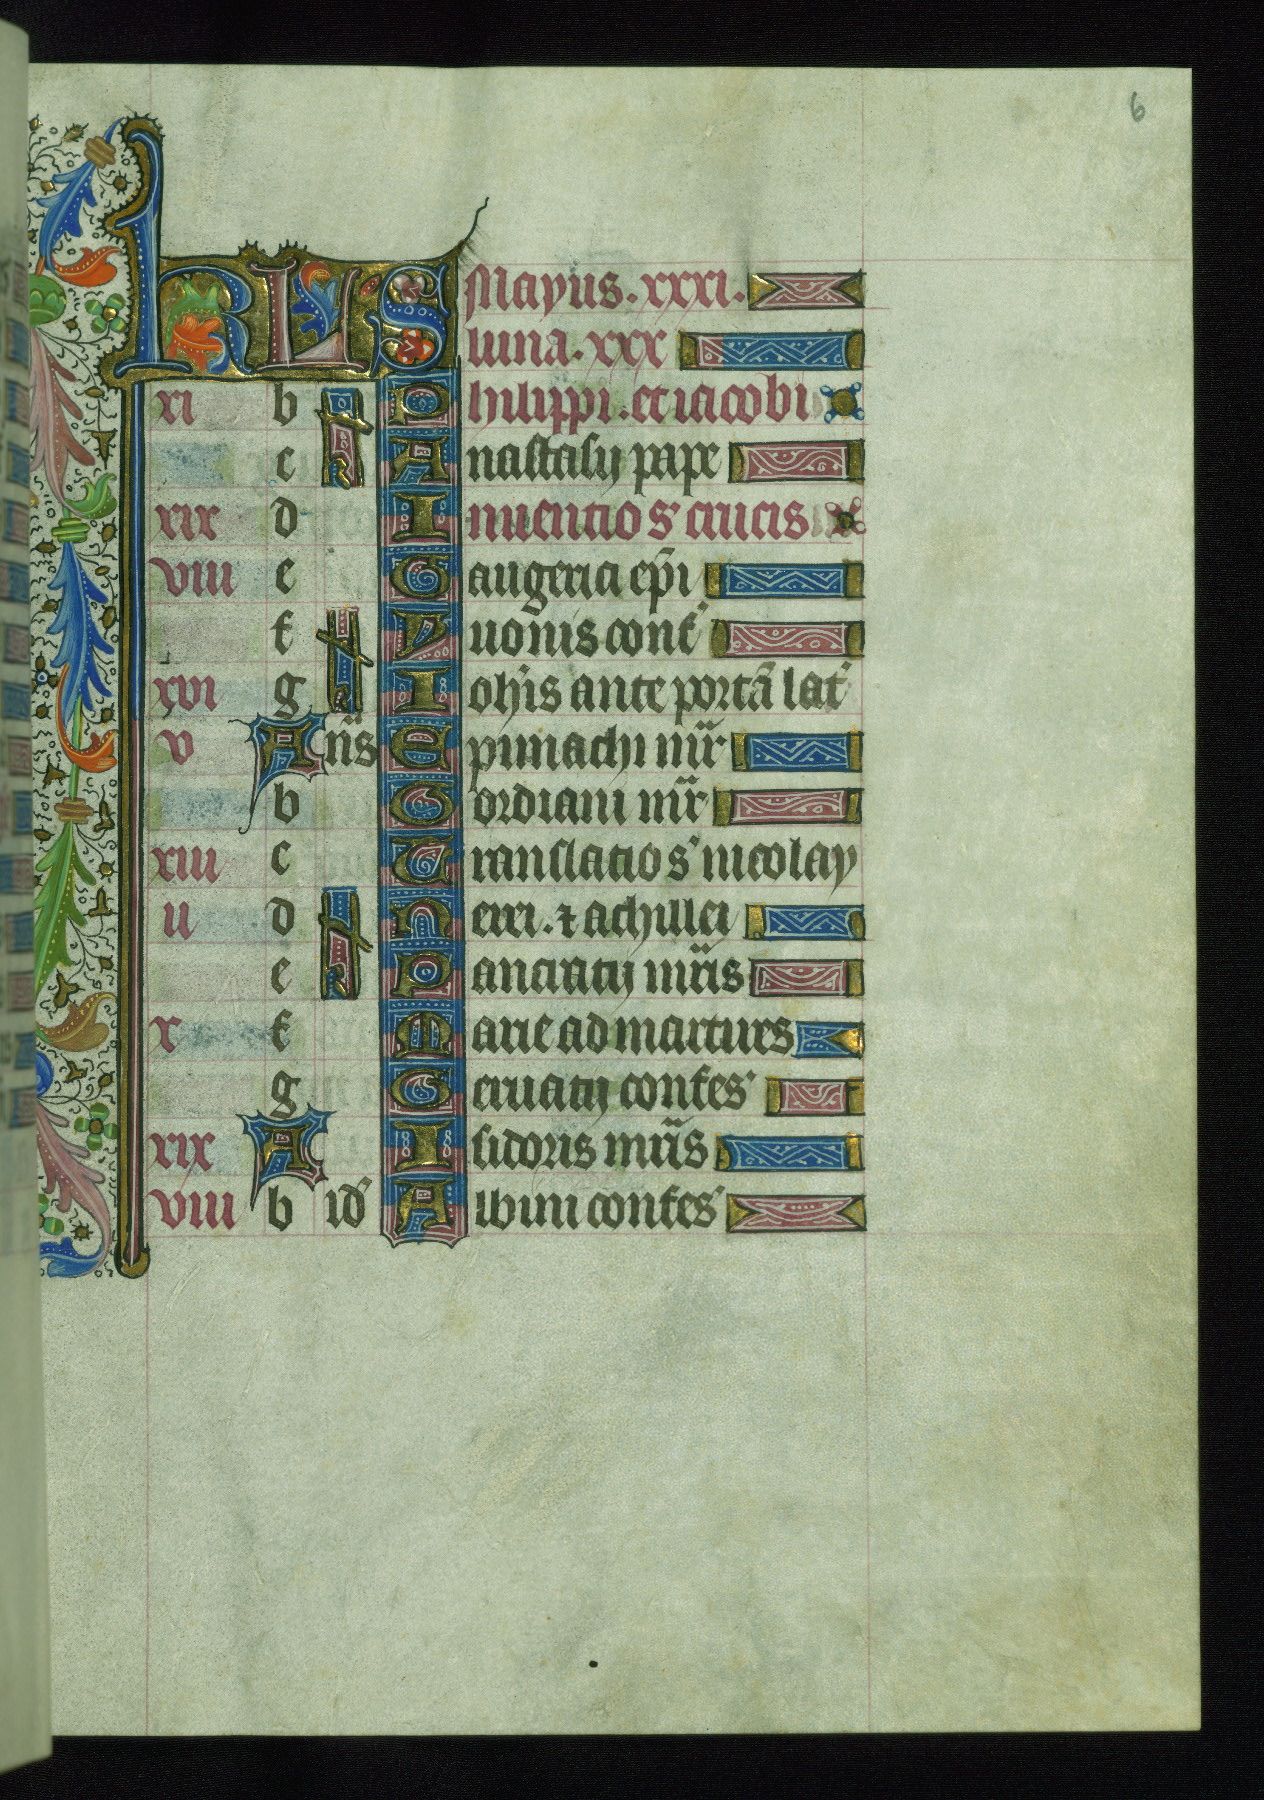 6
KL Mayus. xxxi.
luna. xxx
xi b Philippi. et iacobi
c N Anastasij pape
xix d Inuentio s' crucis
viii e Gaugerici ep̄i
f N Yuonis conf'
xvi g Ioh'is ante portā lat'
v A nās Epimachi mr̄
b Gordiani mr̄
xiii c Translatio s' nicolay
ii d N Nerei. ⁊ achillei
e Pancratij mr̄is
x f Marie ad martires
g Geruatij confes'
xix A Isidoris mr̄is
viii b id' Albini confes'